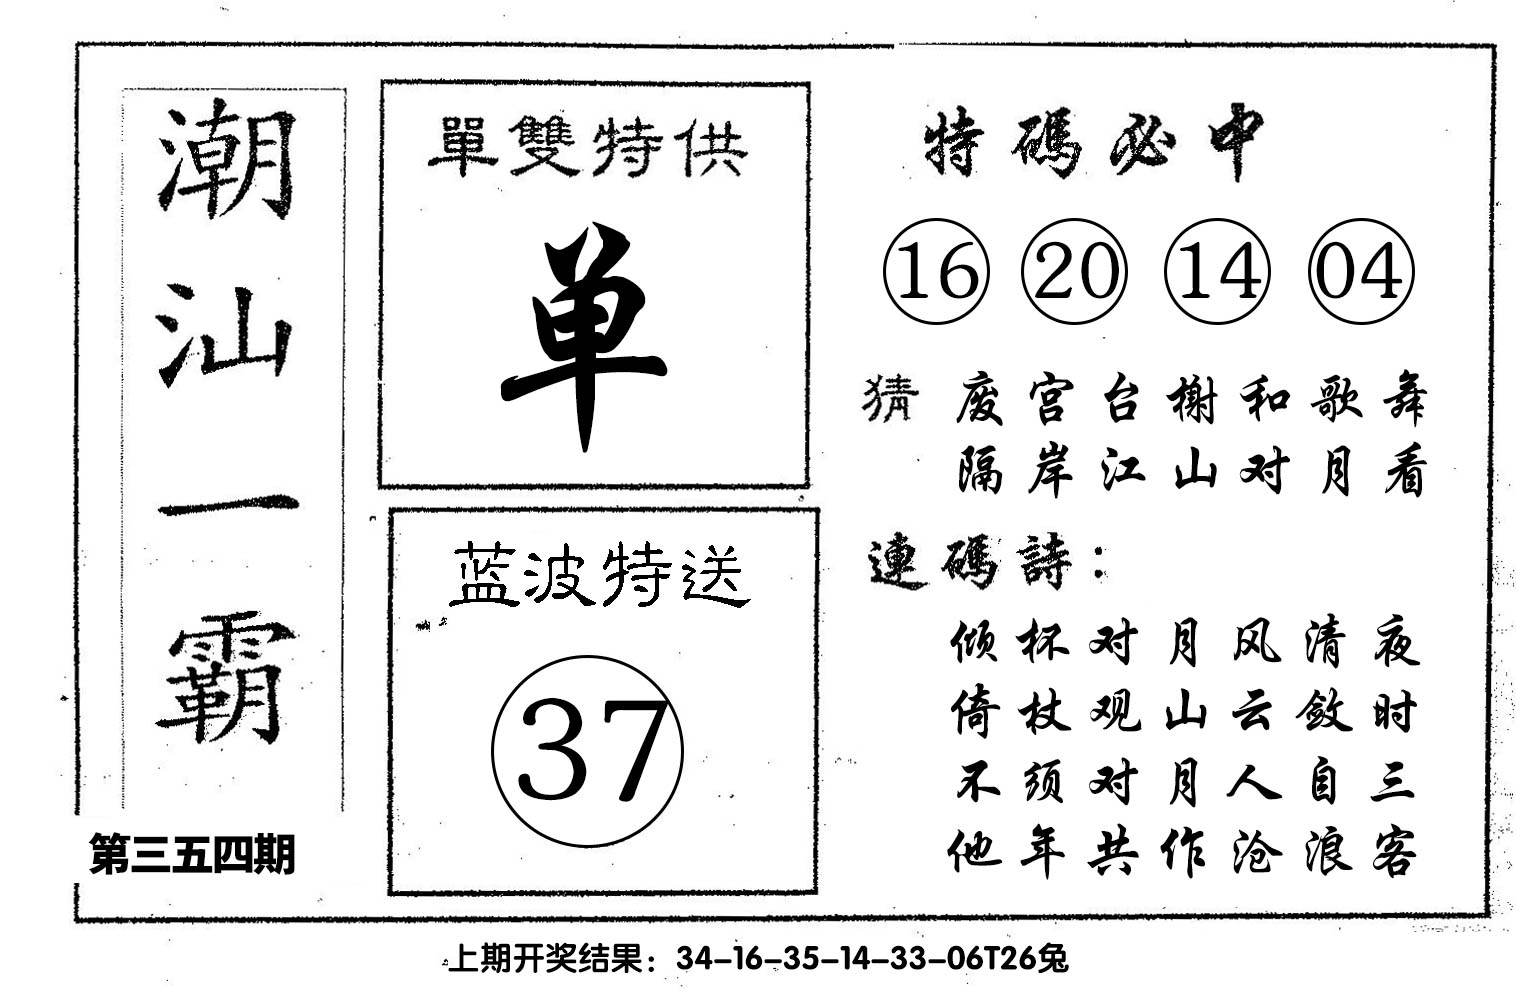 潮汕一霸
第三五四期
單雙特供
单
蓝波特送
37
特碼必中
16 20 14 04
猜 废宫台榭和歌舞
隔岸江山对月看
連碼詩：
倾杯对月风清夜
倚杖观山云敛时
不须对月人自三
他年共作沧浪客
上期开奖结果：34-16-35-14-33-06T26兔